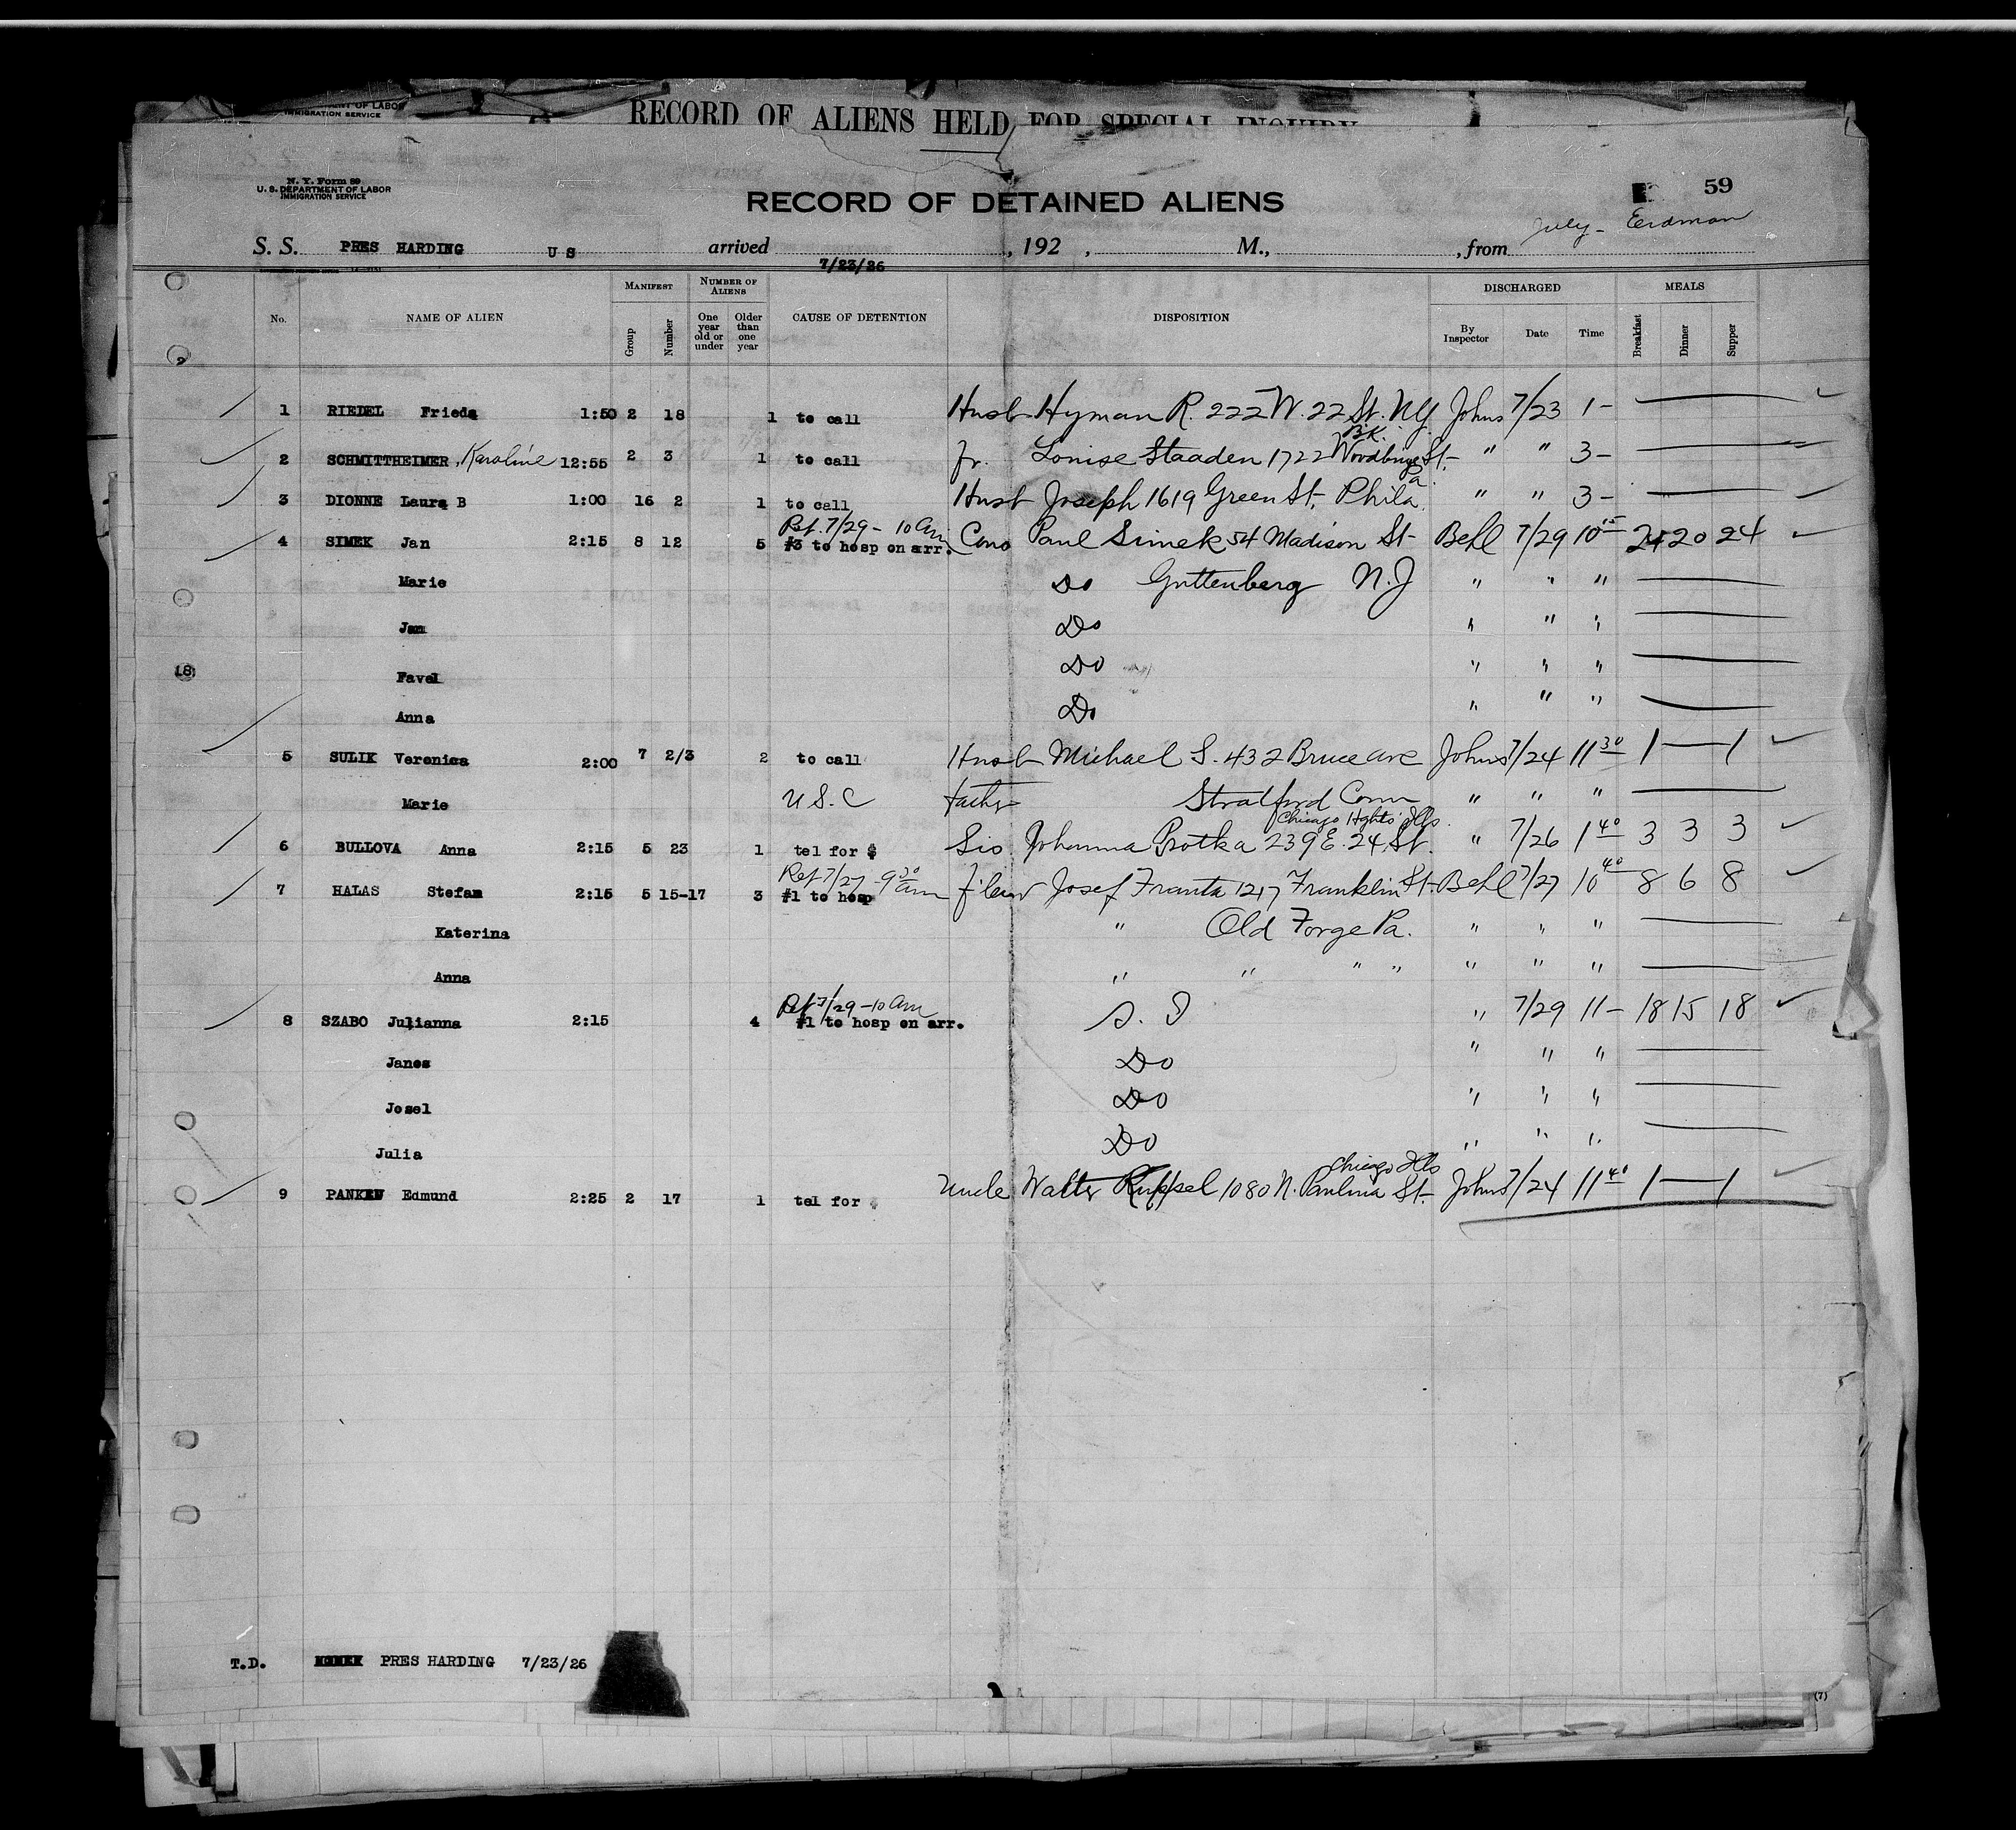 RECORD OF ALIENS HELD FOR SPECIAL INQUIRY
IMMIGRATION SERVICE
N. Y. Form 89
U. S. DEPARTMENT OF LABOR
IMMIGRATION SERVICE
RECORD OF DETAINED ALIENS
59
S. S. PRES HARDING U S arrived 7/23/26, 192 , M., , from July - Erdman
No. NAME OF ALIEN MANIFEST Group Number NUMBER OF ALIENS One year old or under Older than one year CAUSE OF DETENTION DISPOSITION DISCHARGED By Inspector Date Time MEALS Breakfast Dinner Supper
1 RIEDEL Frieda 1:50 2 18 1 to call Husb Hyman R. 222 W. 22 St. NY Johns 7/23 1 -
2 SCHMITTHEIMER, Karoline 12:55 2 3 1 to call Fr. Louise Staaden 1722 Woodbine St. BK. " " 3 -
3 DIONNE Laura B 1:00 16 2 1 to call Husb Joseph 1619 Green St. Phila " " 3 -
4 SIMEK Jan 2:15 8 12 5 Ref. 7/29 - 10 am #3 to hosp on arr. Cons Paul Simek 54 Madison St - Behl 7/29 10 15 24 20 24
Marie Do Guttenberg N.J " " "
Jan Do " " "
Pavel Do " " "
Anna Do " " "
5 SULIK Veronica 2:00 7 2/3 2 to call Husb Michael S. 432 Bruce ave Johns 7/24 11 30 1 — 1
Marie U S. C father Stratford Conn " " "
6 BULLOVA Anna 2:15 5 23 1 tel for $ Sis. Johanna Protka 239 E. 24 St. Chicago Hghts Ills. " 7/26 1 40 3 3 3
7 HALAS Stefan 2:15 5 15-17 3 Ref 7/27 - 9 30 am #1 to hosp Josef Franta 1217 Franklin St. Behl 7/27 10 40 8 6 8
Katerina " Old Forge Pa. " " "
Anna " " " " " " "
8 SZABO Julianna 2:15 4 Ref 7/29 - 10 am #1 to hosp on arr. S. I " 7/29 11 - 18 15 18
Janos Do " " "
Josel Do " " "
Julia Do " " "
9 PANKEN Edmund 2:25 2 17 1 tel for $ Uncle Walter Ruppel 1080 N. Paulina St. Chicago Ills Johns 7/24 11 40 1 — 1
T.D. PRES HARDING 7/23/26
(7)